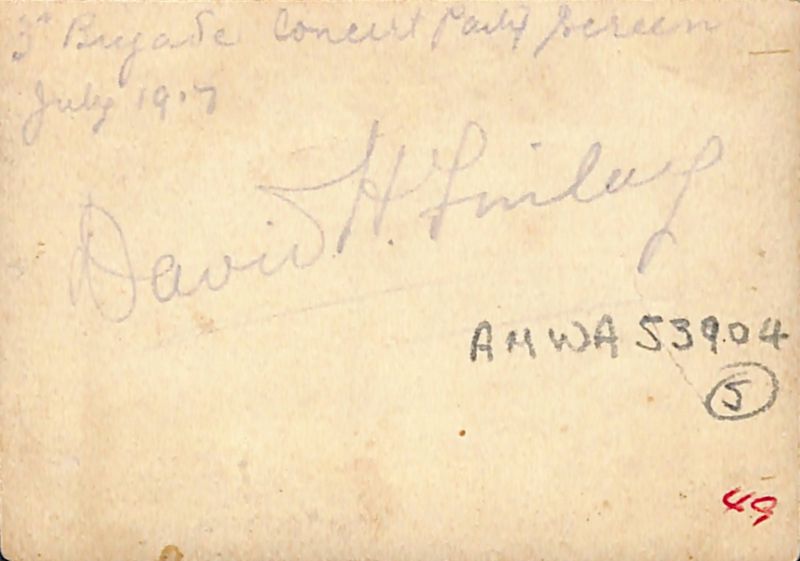 3rd Brigade Concert Party Screen
July 1917
David H. Finlay
AMWA 53904
5
49